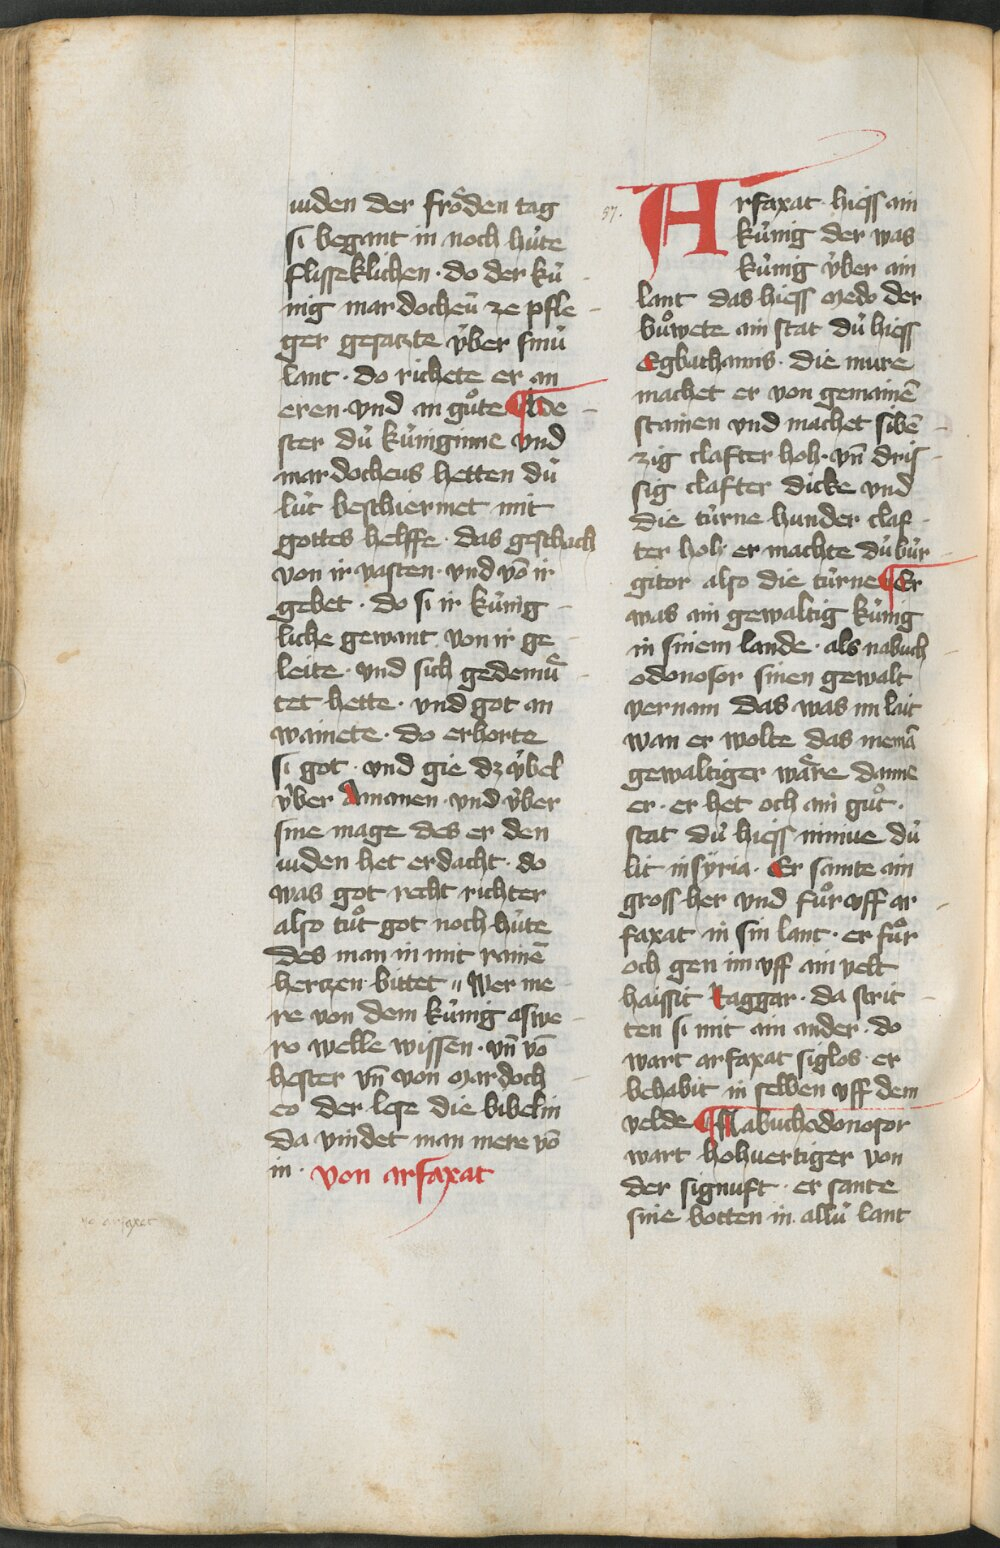 iuden der froͤden tag
si begant in noch huͤte
flisseklichen · do der kuͤ
nig mardocheū ze pfle
ger gesatzte uͤber sinuͤ
lant · do richete er an
eren · vnd an guͦte ¶ He
ster duͤ kuͤniginne vnd
mardocheus hetten duͤ
luͤt beschiermet mit
gottes helffe · das geschach
von ir vasten · vnd vō ir
gebet · do si ir kuͤnig
liche gewant von ir ge
leite · vnd sich gedemuͤ
tet hette · vnd got an
wainete · do erhorte
si got · vnd gie dz uͤbel
uͤber Amanen · vnd uͤber
sine mage des er den
iuden het erdacht · do
was got recht richter
also tuͦt got noch huͤte
des man in mit rainē
hertzen bittet ·· Wer me
re von dem kuͤnig aswe
ro welle wissen · vn̄ vō
hester vn̄ von mardoch
eo der lese die bibelin
da vindet man mere vō
in · von arfaxat
vo arfaxat
57.
Arfaxat · hiess ain
kuͤnig der was
kuͤnig uͤber ain
lant das hiess medo der
buͦwete ain stat duͤ hiess
Egbathanis · die mure
machet er von gemainē
stainen vnd machet sibē
zig clafter hoh · vn̄ dris
sig clafter dicke vnd
die tuͤrne hunder claf
ter hoh · er machte duͤ buͤr
gitor also die tuͤrne ¶ Er
was ain gewaltig kuͤnig
in sinem lande · als nabuch
odonosor sinen gewalt
vernam das was im lait
wan er wolte das niemā
gewaltiger waͤre danne
er · er het och ain guͦt ·
stat duͤ hiess niniue duͤ
lit in syria · Er sante ain
gross her vnd fuͦr vff ar
faxat in sin lant · er fuͦr
och gen im vff ain velt
haissit Raggar · da strit
ten si mit ain ander · do
wart arfaxat siglos · er
behabit in selben vff dem
velde ¶ Nabuchodonosor
wart hohuertiger von
der signuft · er sante
sine botten in alluͤ lant